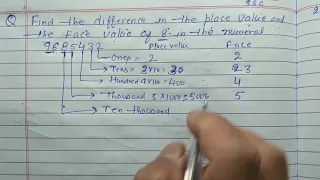 SSC
Q Find the difference in the place value and
the Face value of 8 in the numeral
9685432
Place value Face
Ones = 2 2
Tens = 3×10 = 30 3
Hundred 4×100 = 400 4
Thousand 5×1000 = 5000 5
Ten thousand